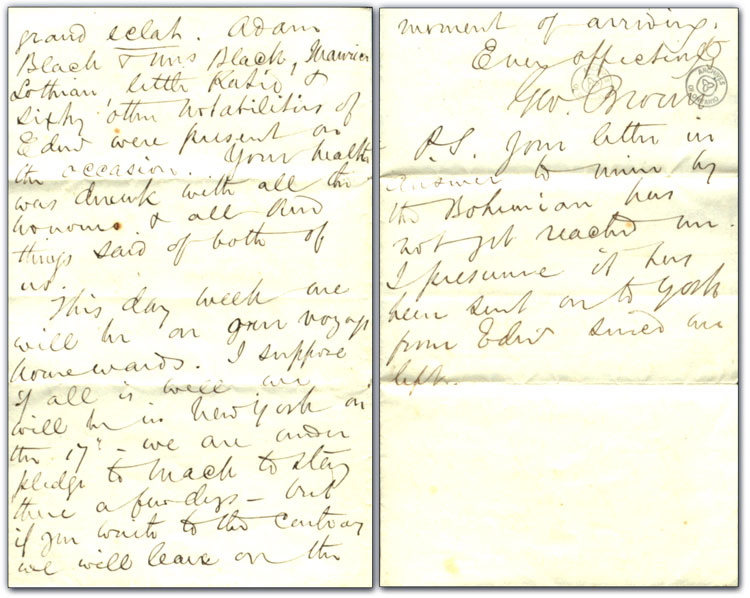 grand eclat. Adam
Black & Mrs Black, Maurice
Lothian, little Katie &
sixty other notabilities of
Edinr were present on
the occasion. Your health
was drunk with all the
honours & all kind
things said of both of
us.
This day week we
will be on our voyage
homewards. I suppose
if all is well we
will be in New York on
the 17th - we are under
pledge to Mack to stay
there a few days - but
if you write to the contrary
we will leave on the
moment of arriving.
Ever affectionately
Geo. Brown
P.S. Your letter in
answer to mine by
the Bohemian has
not yet reached me.
I presume it has
been sent on to York
from Edinr since we
left.
ARCHIVES
OF ONTARIO